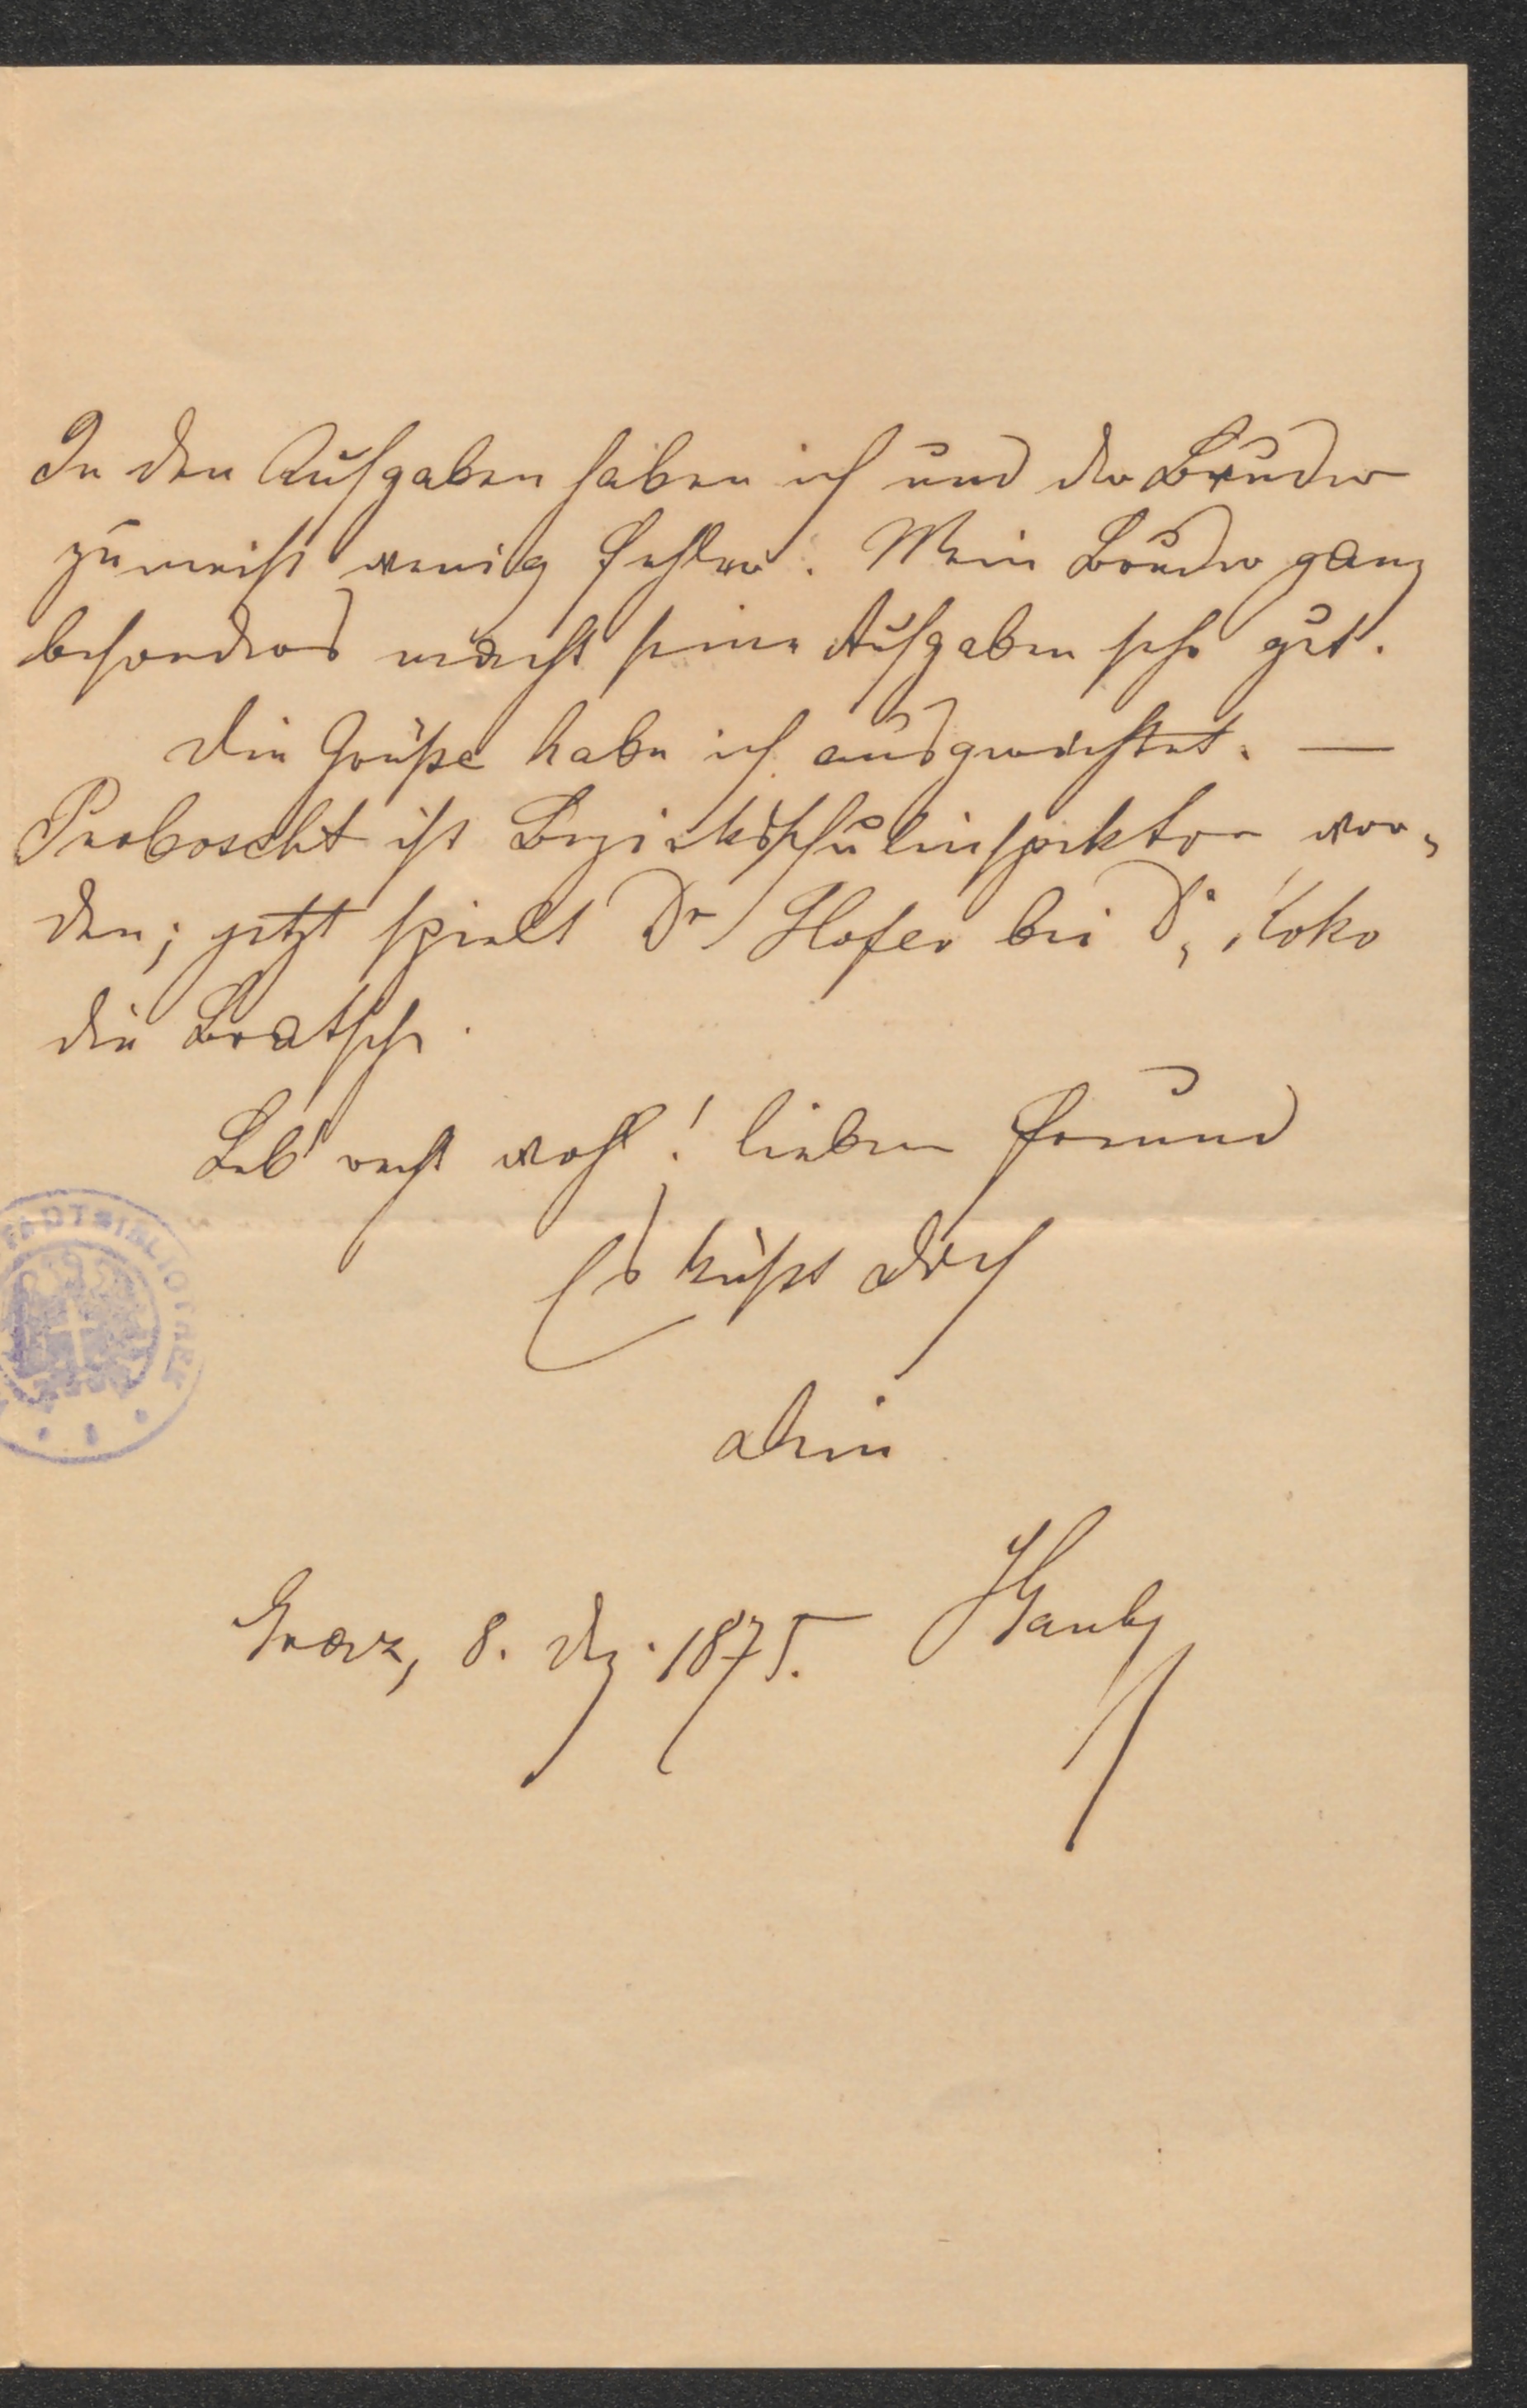 In den Aufgaben haben ich und der Bruder
zumeist wenig Fehler. Mein Bruder ganz
besonders macht seine Aufgaben sehr gut.
Die Grüße habe ich ausgerichtet. —
Proboscht ist Bezirksschulinspektor wor-
den; jetzt spielt Dr Hofer bei Dr. Koko
die Bratsche.
Leb' recht wohl! lieber Freund
Es küßt Dich
Dein
Graz, 8. Dez. 1875.
STADTBIBLIOTHEK